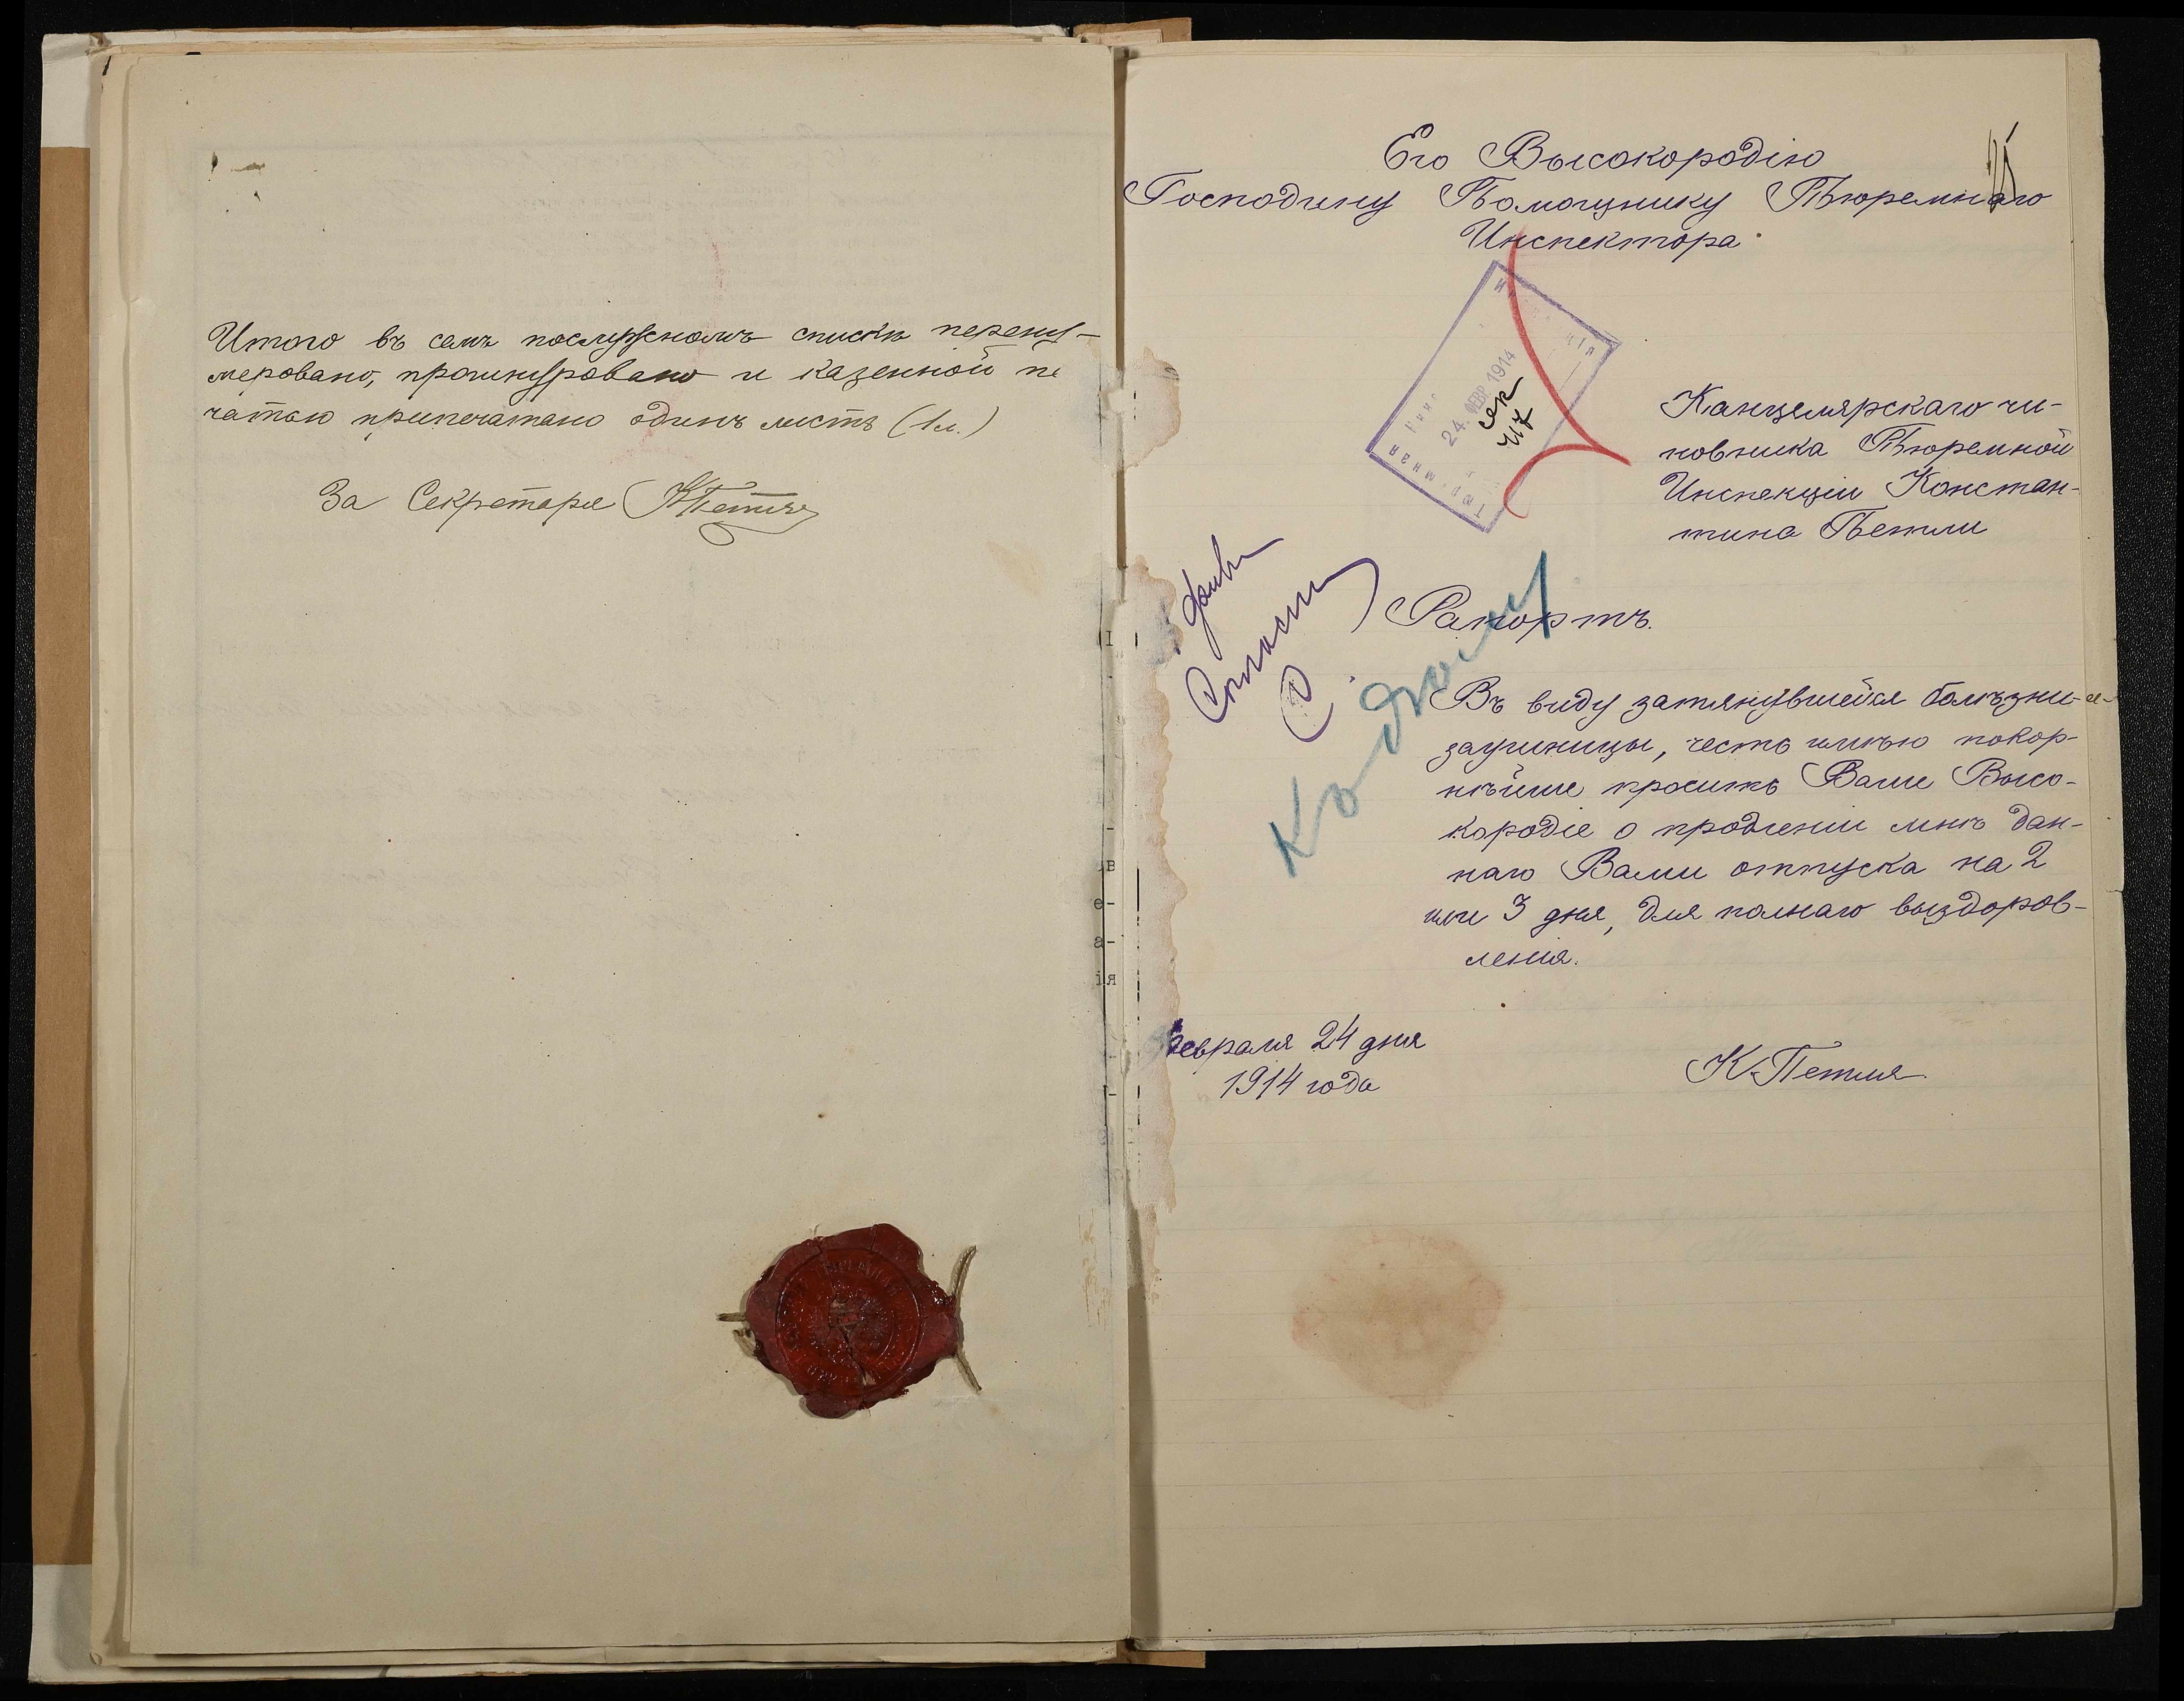 Итого въ семъ послужномъ спискѣ перену-
меровано, прошнуровано и казенной пе
чатью припечатано одинъ листъ (1 л.)
За Секретаря КПетля
Его Высокородію
Господину Помощнику Тюремнаго
Инспектора
24. ФЕВР 1914
Канцелярскаго чи-
новника Тюремной
Инспекціи Констан-
тина Петли
Рапортъ.
Согласенъ
Къ дѣлу
Въ виду затянувшейся болѣзни-
заушницы, честь имѣю покор-
нѣйше просить Ваше Высо-
кородіе о продленіи мнѣ дан-
наго Вами отпуска на 2
или 3 дня, для полнаго выздоров-
ленія.
Февраля 24 дня
1914 года
К Петля